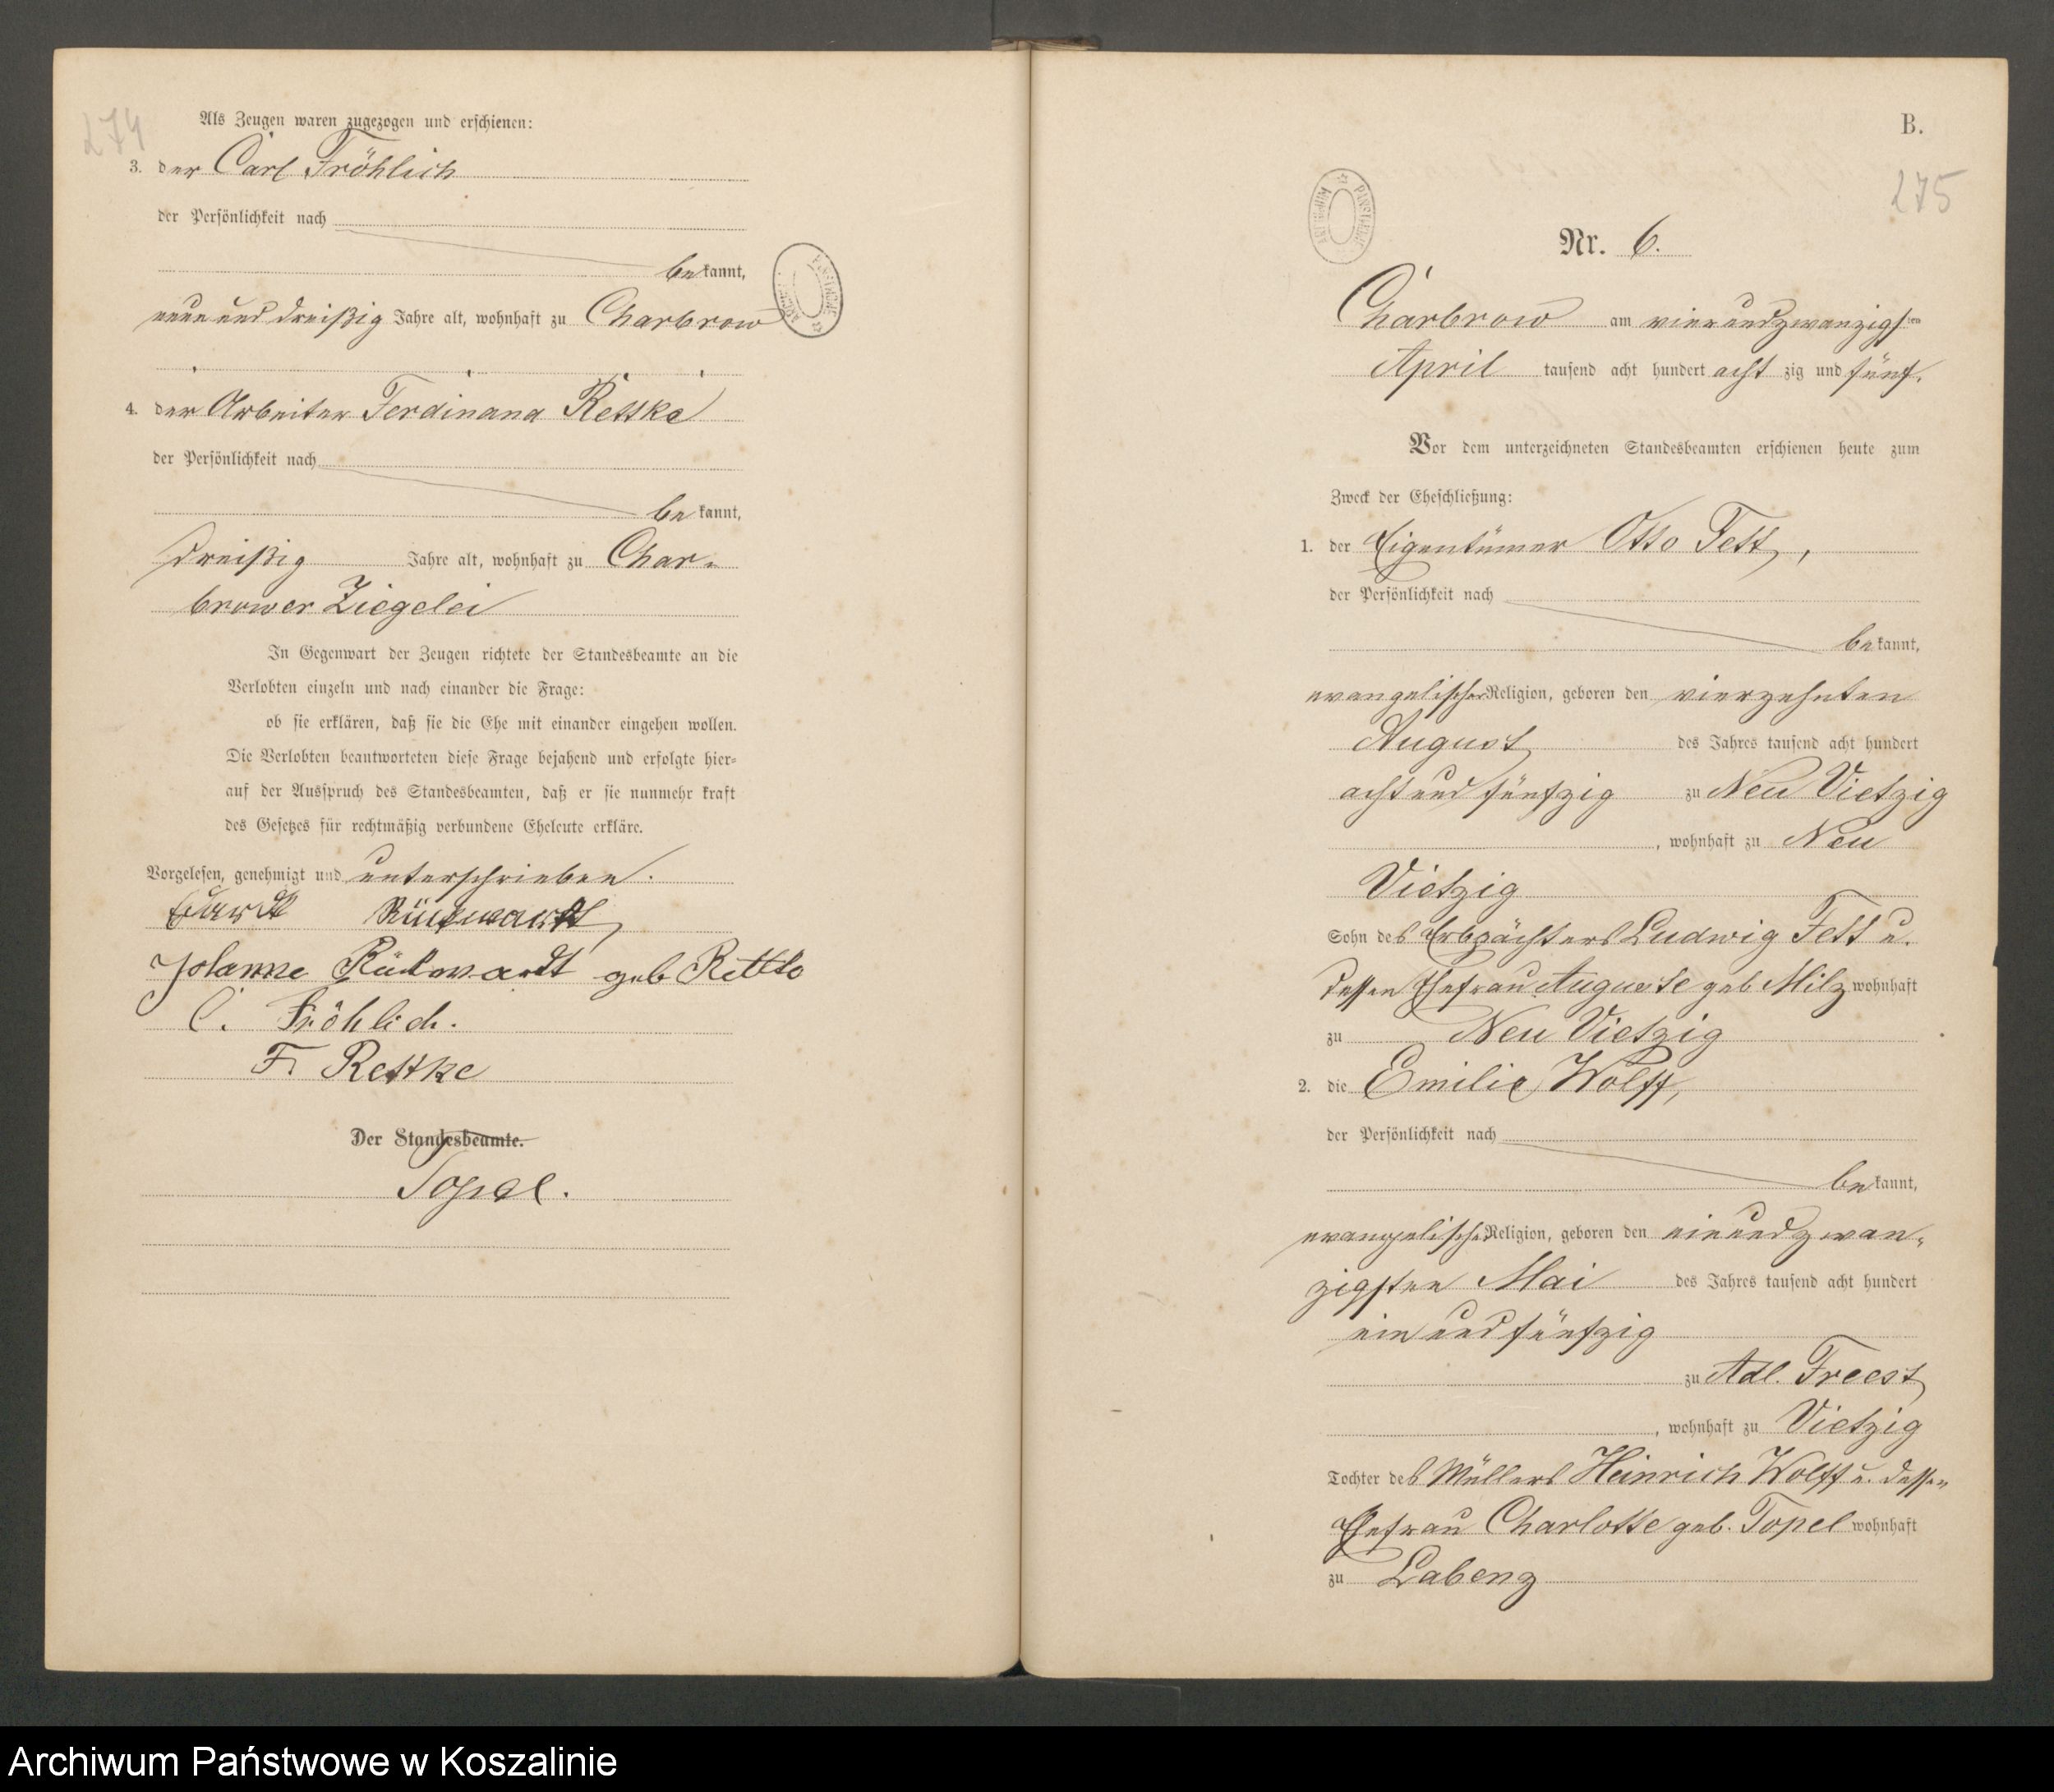 274
Als Zeugen waren zugezogen und erschienen:
3. der Carl Fröhlich
der Persönlichkeit nach
bekannt,
neun und dreißig Jahre alt, wohnhaft zu Charbrow
4. der Arbeiter Ferdinand Rettke
der Persönlichkeit nach
be kannt,
dreißig Jahre alt, wohnhaft zu Char-
brower Ziegelei
In Gegenwart der Zeugen richtete der Standesbeamte an die
Verlobten einzeln und nach einander die Frage:
ob sie erklären, daß sie die Ehe mit einander eingehen wollen.
Die Verlobten beantworteten diese Frage bejahend und erfolgte hier-
auf der Ausspruch des Standesbeamten, daß er sie nunmehr kraft
des Gesetzes für rechtmäßig verbundene Eheleute erkläre.
Vorgelesen, genehmigt und unterschrieben.
Rückwardt
Johanne Rückwardt geb
C. Fröhlich.
F. Rettke
Der Standesbeamte.
Topel.
B.
275
Nr. 6.
Charbrow am vierundzwanzigsten
April tausend acht hundert acht zig und fünf.
Vor dem unterzeichneten Standesbeamten erschienen heute zum
Zweck der Eheschließung:
1. der Eigentümer Otto Fett,
der Persönlichkeit nach
bekannt,
evangelischer Religion, geboren den vierzehnten
August des Jahres tausend acht hundert
acht und fünfzig zu Neu Vietzig
, wohnhaft zu Neu
Vietzig
Sohn des Erbpächters Ludwig Fett u.
dessen Ehefrau Auguste geb Milz wohnhaft
zu Neu Vietzig
2. die Emilie Wolff,
der Persönlichkeit nach
bekannt,
evangelischer Religion, geboren den einundzwan-
zigsten Mai des Jahres tausend acht hundert
ein und fünfzig
zu Adl. Freest
, wohnhaft zu Vietzig
Tochter des Müllers Heinrich Wolff u. dessen
Ehefrau Charlotte geb. Topel wohnhaft
zu Labenz
Archiwum Państwowe w Koszalinie